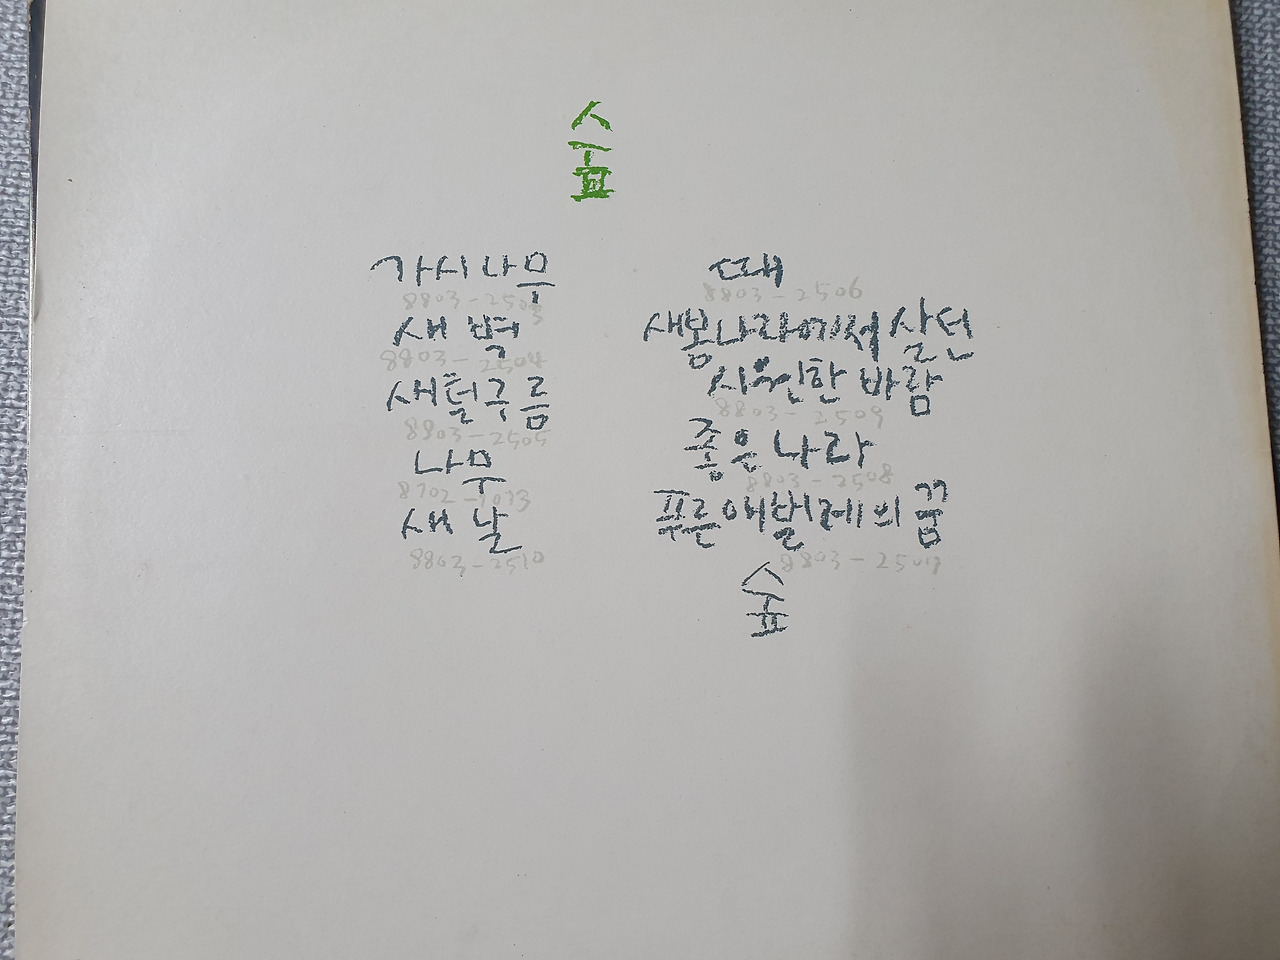 숲
가시나무
8803-2503
새벽
8803-2504
새털구름
8803-2505
나무
8702-1073
새날
8803-2510
때
8803-2506
새봄나라에서 살던
시원한 바람
8803-2509
좋은 나라
8803-2508
푸른 애벌레의 꿈
8803-2507
숲